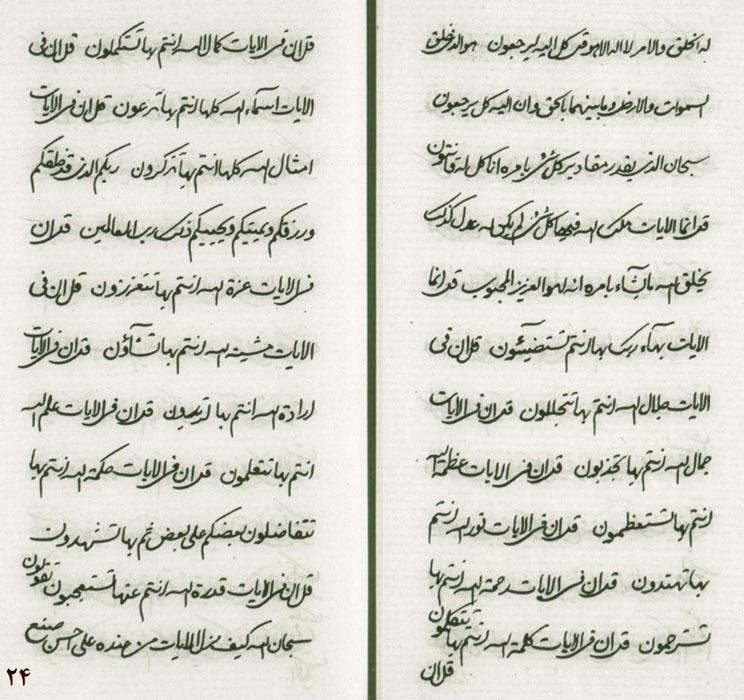 له الخلق والامر لا اله الا هو قل كل اليه ليرجعون هو الذي خلق
السموات والارض وما بينهما بالحق وان اليه كل يرجعون
سبحان الذي يقدر مقادير كل شئ بامره انا كل له قانتون
قل انما الايات ملك الله فيها كل شئ لم يكن له عدل كذلك
يخلق الله ما يشاء بامره انه لهو العزيز المحبوب قل انما
الايات بهاء ربك بها انتم تستضيئون قل ان في
الايات جلال الله انتم بها تتجللون قل ان في الايات
جمال الله انتم بها تجذبون قل ان في الايات عظمة الله
انتم بها تستعظمون قل ان في الايات نور الله انتم
بها تهتدون قل ان في الايات رحمة الله انتم بها
تسترحمون قل ان في الايات كلمة الله انتم بها تتكلمون
قل ان
قل ان في الايات كمال الله انتم بها تستكملون قل ان في
الايات اسماء الله كلها انتم بها تدعون قل ان في الايات
امثال الله كلها انتم بها تذكرون ربكم الذي قد خلقكم
ورزقكم ويميتكم ويحييكم ذلك رب العالمين قل ان
في الايات عزة الله انتم بها تتعززون قل ان في
الايات مشية الله انتم بها تشاؤن قل ان في الايات
ارادة الله انتم بها تريدون قل ان في الايات علم الله
انتم بها تتعلمون قل ان في الايات حكمة الله انتم بها
تتفاضلون بعضكم على بعض ثم بها تشهدون
قل ان في الايات قدرة الله انتم عنها لتستعجبون تقولون
سبحان الله كيف نزل الايات من عنده على احسن صنع
۲۴